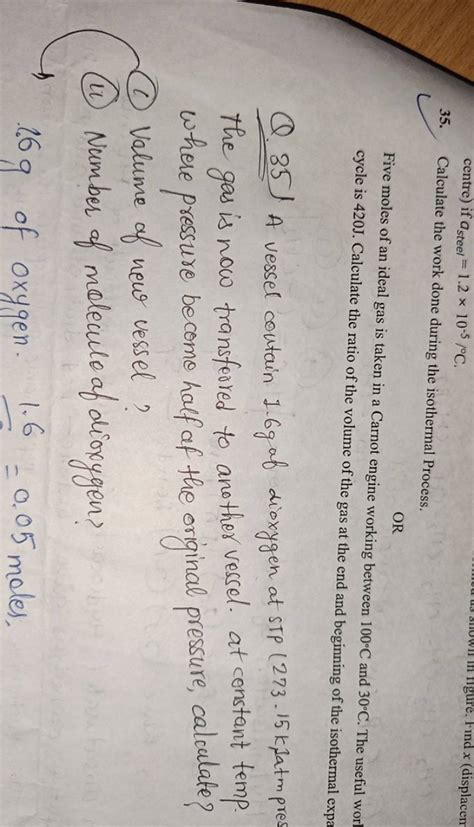 centre) if a steel = 1.2 × 10⁻⁵ /°C.
35. Calculate the work done during the isothermal Process.
OR
Five moles of an ideal gas is taken in a Carnot engine working between 100°C and 30°C. The useful wor
cycle is 420J. Calculate the ratio of the volume of the gas at the end and beginning of the isothermal expa
Q.35) A vessel contain 1.6g of dioxygen at STP (273.15K, 1atm pres
the gas is now transferred to another vessel. at constant temp.
where pressure become half of the original pressure, calculate?
(i) Volume of new vessel?
(ii) Number of molecule of dioxygen?
1.6g of oxygen. 1.6 = 0.05 moles.